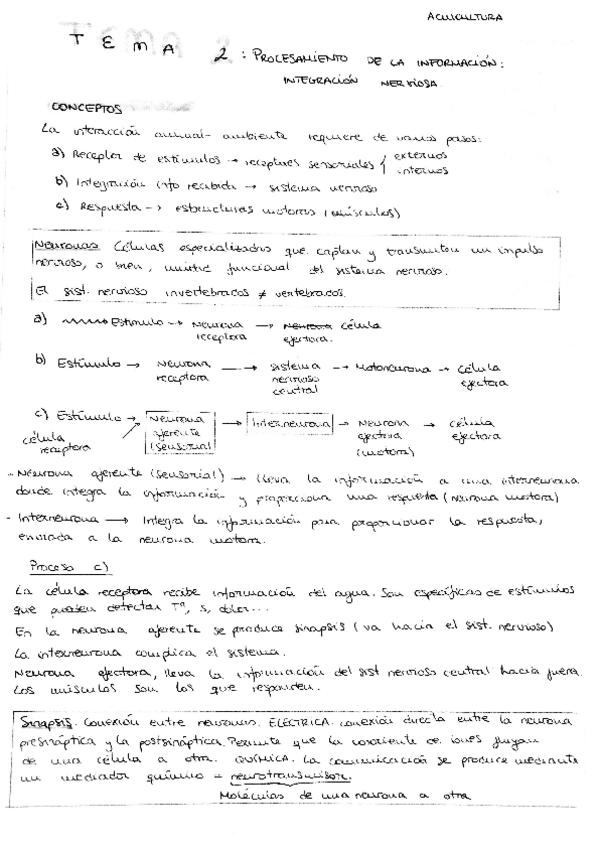 ACUICULTURA
TEMA 2: PROCESAMIENTO DE LA INFORMACIÓN:
INTEGRACIÓN NERVIOSA
CONCEPTOS
La interacción animal-ambiente requiere de varios pasos:
a) Receptor de estímulos → receptores sensoriales { externos
internos
b) Integración info recibida → sistema nervioso
c) Respuesta → estructuras motoras (músculos)
Neuronas Células especializadas que captan y transmiten un impulso
nervioso, o bien, unidad funcional del sistema nervioso.
El sist. nervioso invertebrados ≠ vertebrados.
a) Estímulo → Neurona → Neurona célula
receptora ejectora.
b) Estímulo → Neurona → sistema → Motoneurona → Célula
receptora nervioso ejectora
central
c) Estímulo → Neurona → Interneurona → Neurona → célula
célula aferente ejectora ejectora
receptora (sensorial) (motora)
- Neurona aferente (sensorial) → lleva la información a una interneurona
donde integra la información y proporciona una respuesta (neurona motora)
- Interneurona → Integra la información para proporcionar la respuesta,
enviada a la neurona motora.
Proceso c)
La célula receptora recibe información del agua. Son específicas de estímulos
que pueden detectar Tª, S, dolor...
En la neurona aferente se produce sinapsis (va hacia el sist. nervioso)
La interneurona complica el sistema.
Neurona efectora, lleva la información del sist nervioso central hacia fuera.
Los músculos son los que responden.
Sinapsis. Conexión entre neuronas. ELÉCTRICA. conexión directa entre la neurona
presináptica y la postsináptica. Permite que la corriente de iones fluyan
de una célula a otra. QUÍMICA. La comunicación se produce mediante
un mediador químico = neurotransmisor.
Moléculas de una neurona a otra